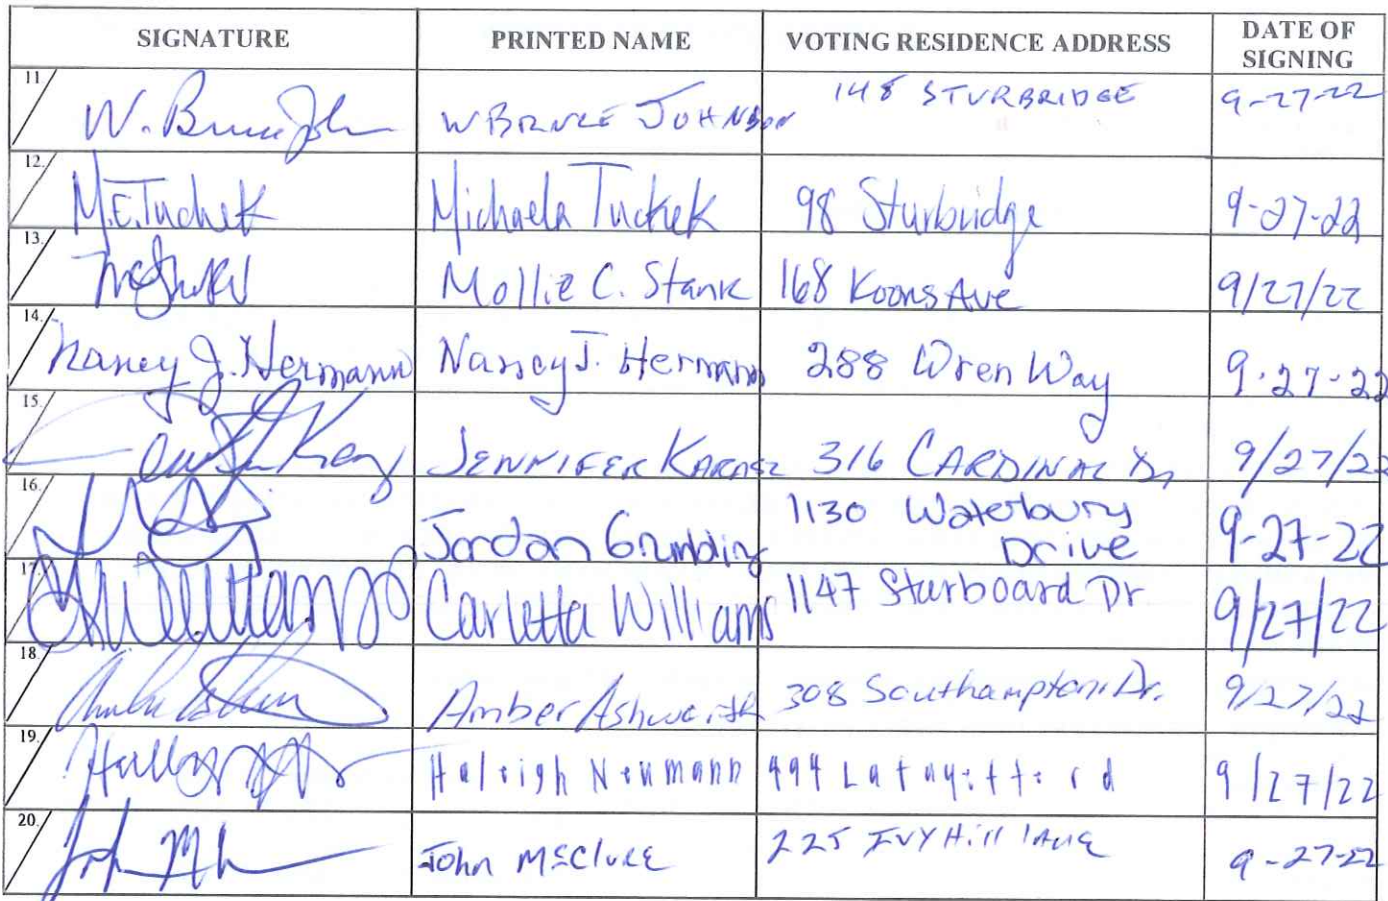 SIGNATURE PRINTED NAME VOTING RESIDENCE ADDRESS DATE OF SIGNING
11 W. Bruce John W BRUCE JOHNSON 148 STURBRIDGE 9-27-22
12. M.E. Tuckek Michaela Tuckek 98 Sturbridge 9-27-22
13. Mollie C. Stank 168 Koons Ave 9/27/22
14. Nancy J. Hermann Nancy J. Hermann 288 Wren Way 9-27-22
15. JENNIFER KARASZ 316 CARDINAL Dr 9/27/22
16. Jordan Grumbling 1130 Waterbury Drive 9-27-22
17. Carletta Williams 1147 Starboard Dr 9/27/22
18 Amber Ashworth 308 Southampton Dr. 9/27/22
19. Haleigh Neumann 494 Lafayette rd 9/27/22
20. John McClure 225 IVY Hill lane 9-27-22